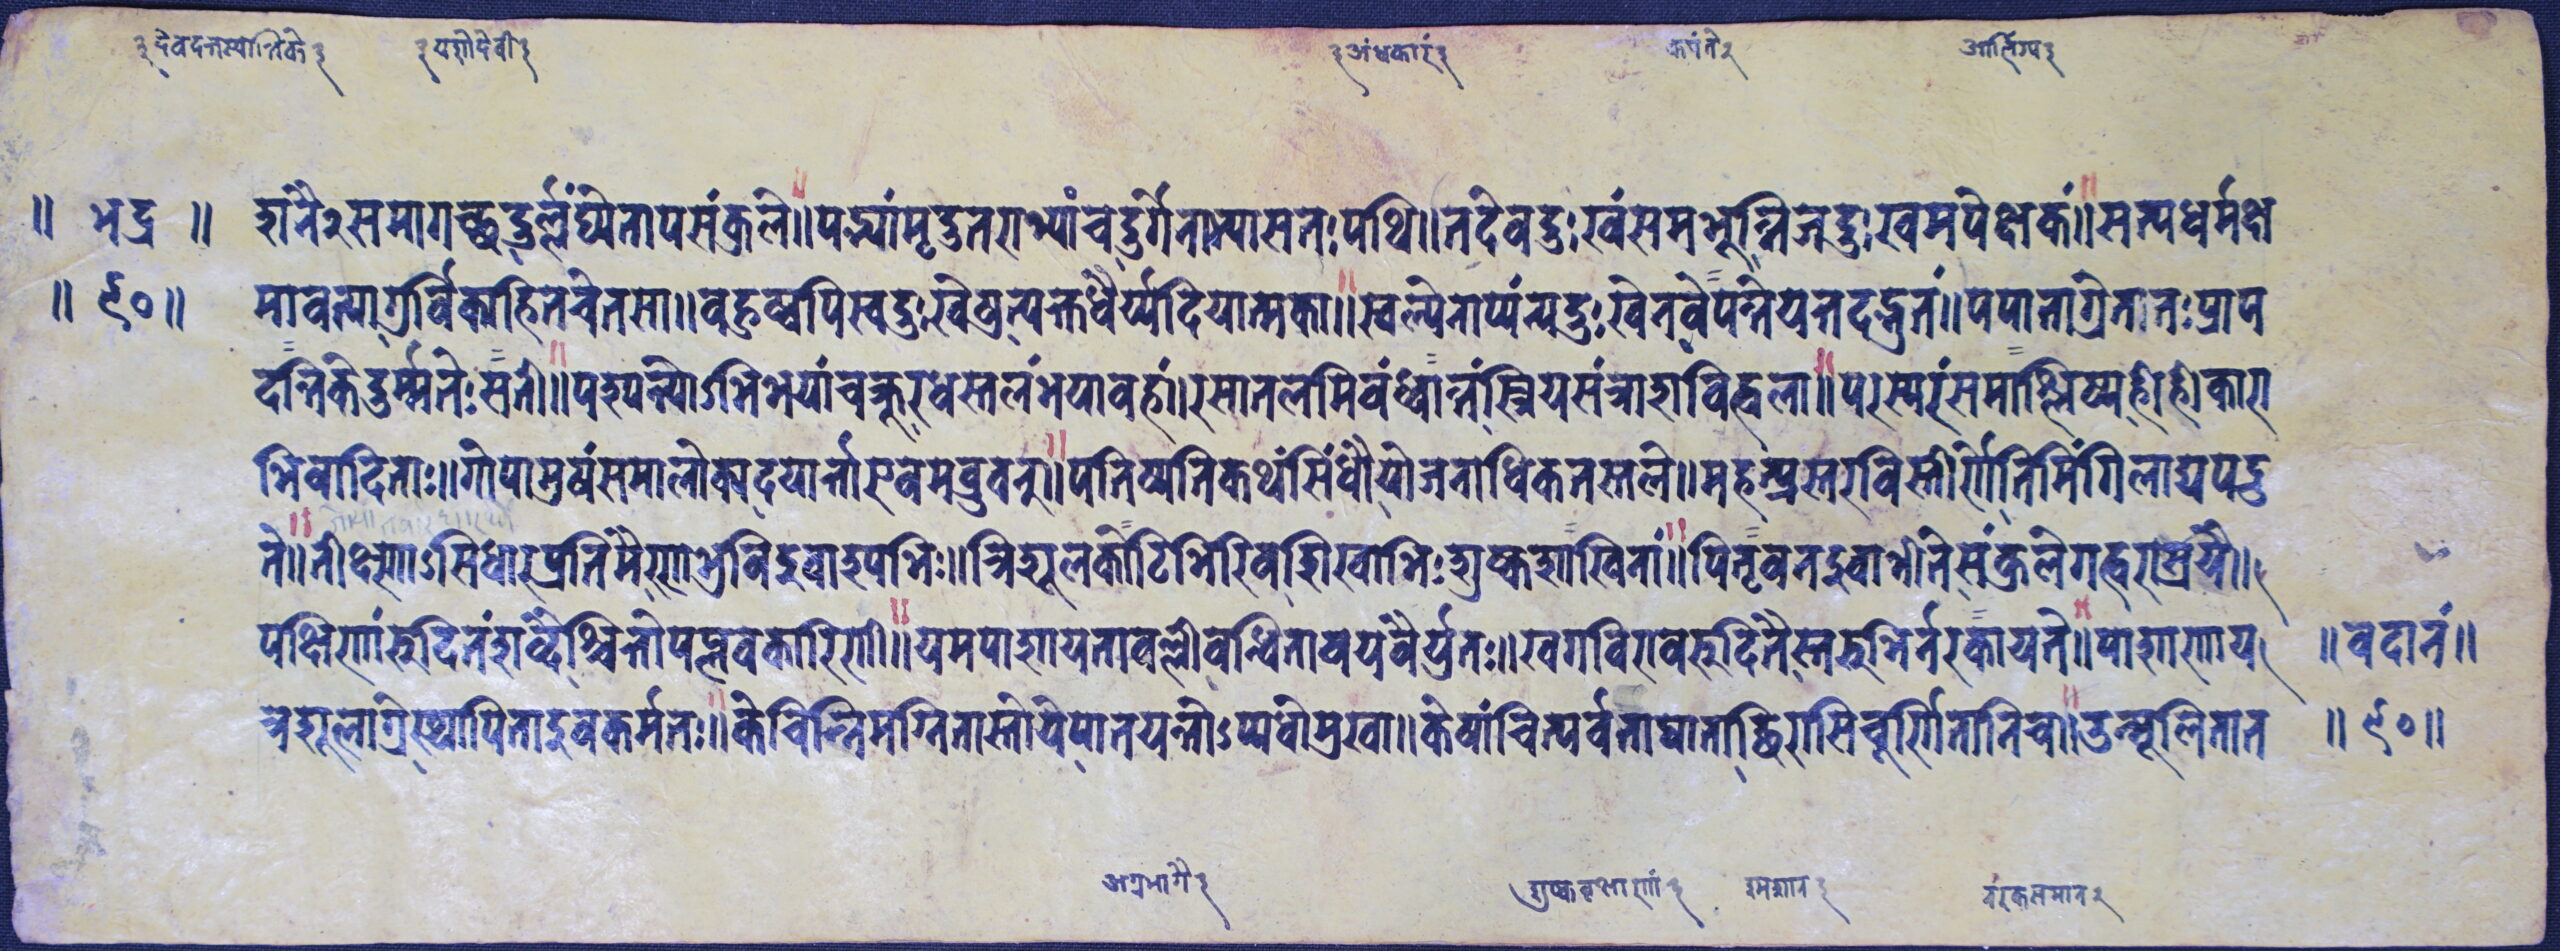 ३ देवदत्तस्यान्तिके ३ ३ यशोदेवी ३ ३ अंधकारं ३ कंपते २ आलिंग्य ३
॥ भद्र ॥ शनैः समागच्छद्दुर्ल्लंघ्येनापसंकुले॥पद्भ्यांमृदुतराभ्यांचदुर्गेनाभ्यासतःपथि॥नदेवदुःखंसमभून्निजदुःखमपेक्षकं॥सत्यधर्मक्ष
॥ ९० ॥ मावत्यागुर्विक्याहितचेतसा॥बहुष्वपिस्वदुःखेषुत्यक्तधैर्य्यदियात्मका॥स्वल्पेनाप्यंन्यदुःखेनवेपन्नेयत्तदद्भुतं॥पपाताग्रेततःप्राप
दन्तिकेदुर्म्मतेःसती॥पश्यन्त्योऽभिभयांचक्रूरधस्तलंभयावहां।रसातलमिवंध्वान्तंस्त्रियसंत्राशविह्वला॥परस्परंसमाश्लिष्यहोहोकारा
भिवादिताः॥गोपामुषंसमालोक्यदयार्त्तास्त्वेमब्रुवन्॥पतिष्यतिकथंसिंधौयोजनाधिकतस्तले॥महत्प्रस्तरविस्तीर्णेतिमिंगिलाद्यपद्रु
ते॥तीक्ष्णाऽसिधारप्रतिमैस्तृणाभ्रेविदुवारुपभिः॥त्रिशूलकोटिभिरिवशिखाभिःशुष्कशाखिनां॥पितृवनइवाभीतेसंकुलेगह्वराम्रयै॥
पक्षिणांरुदितंशब्दैश्चित्तोपप्लवकारिणी॥यमपाशायतावल्लीवन्धितावयवैर्यतः॥खगविरावरुदितैस्तरुभिर्नरकायते॥पाशाणाय ॥ वदानं ॥
त्रशूलाग्रेस्थापितादुवकर्मतः॥केचिन्निमग्नितास्तोयेपातयन्तोऽप्यधोमुखा॥केषांचित्पर्वताघाताच्छिरासिचूर्णितानिच॥उन्मूलितात ॥ ९० ॥
अग्रभागै ३ शुष्कवृक्षाणां ३ स्मशान ३ नरकसमान २